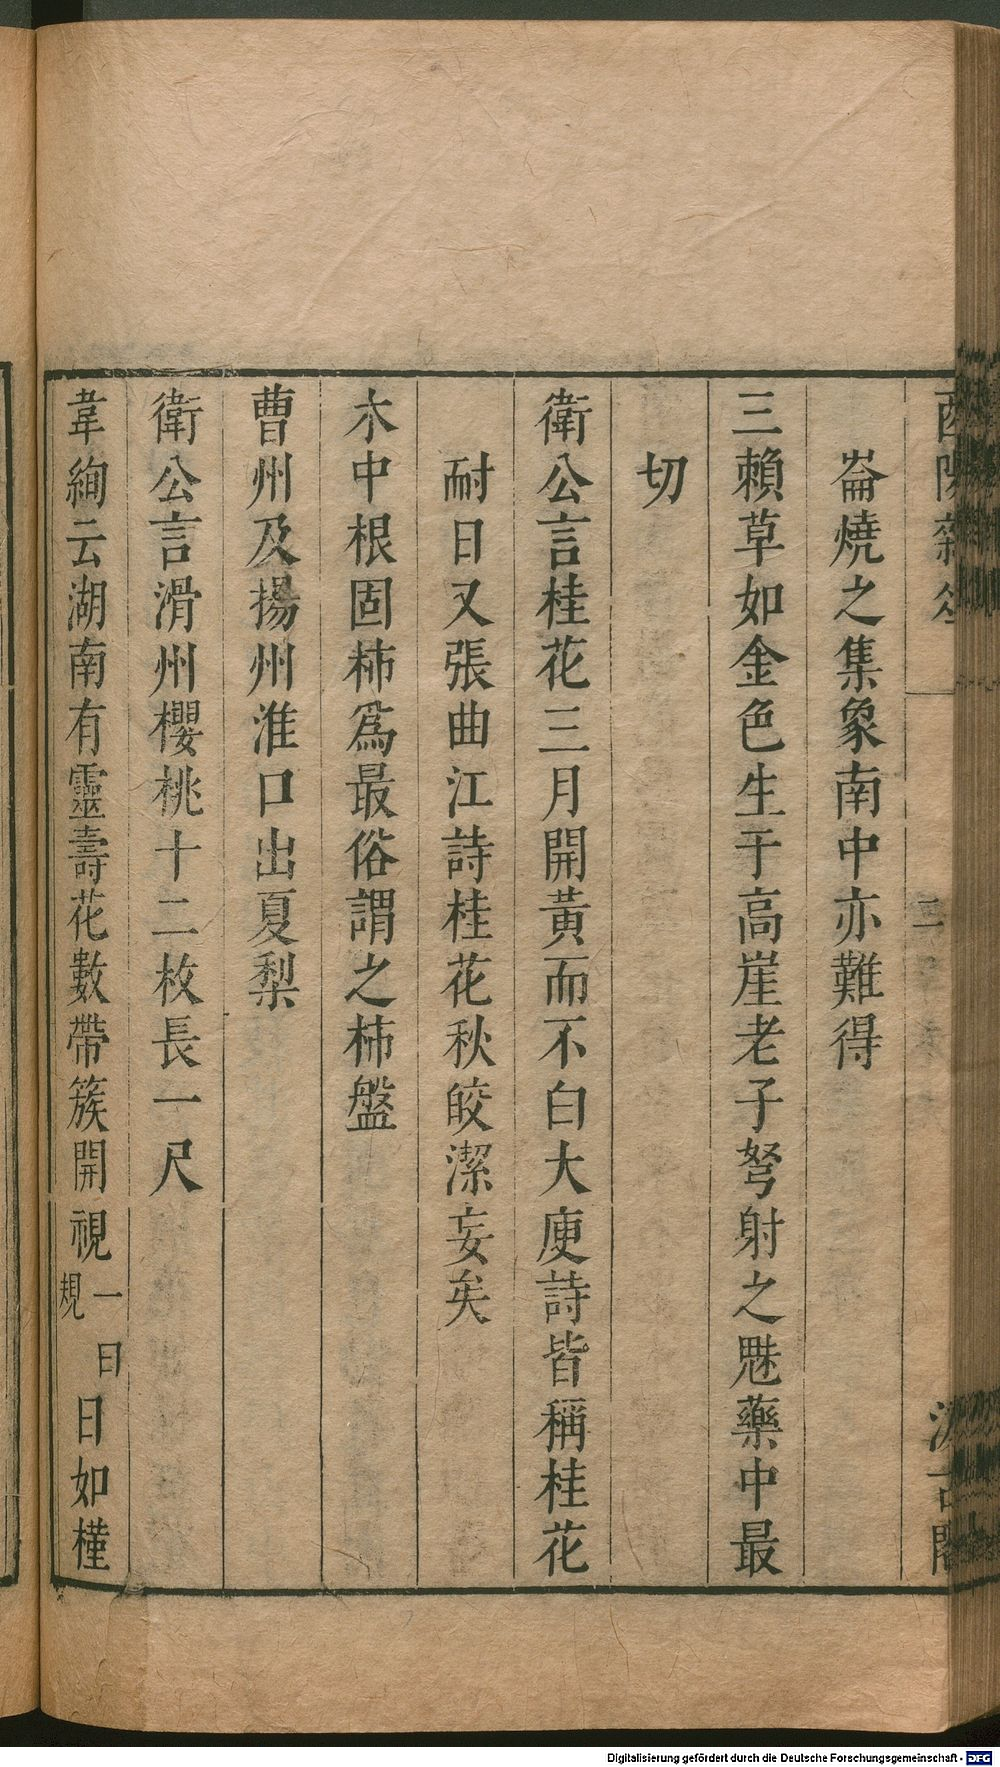 崙燒之集象南中亦難得
三賴草如金色生于高崖老子弩射之魅藥中最
切
衛公言桂花三月開黃而不白大庾詩皆稱桂花
耐日又張曲江詩桂花秋皎潔妄矣
木中根固柿爲最俗謂之柿盤
曹州及揚州淮口出夏梨
衛公言滑州櫻桃十二枚長一尺
韋絢云湖南有靈壽花數帶簇開視一曰規日如槿
Digitalisierung gefördert durch die Deutsche Forschungsgemeinschaft - DFG